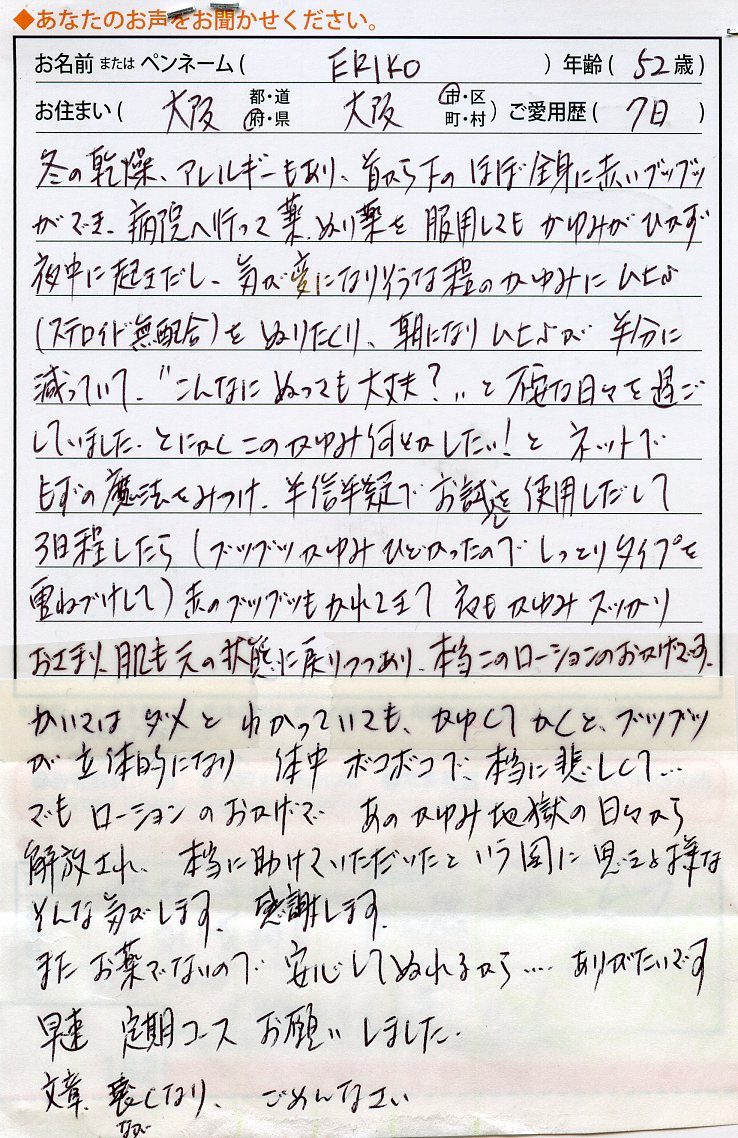 ◆あなたのお声をお聞かせください。
お名前またはペンネーム( ERIKO ) 年齢( 52歳)
お住まい( 大阪 都・道府・県 大阪 市・区町・村) ご愛用歴( 7日 )
冬の乾燥、アレルギーもあり、首から下のほぼ全身に赤いブツブツ
ができ、病院へ行って薬、ぬり薬を服用してもかゆみがひかず
夜中に起きだし、気が変になりそうな程のかゆみに
(ステロイド無配合)をぬりたくり、朝になり が半分に
減っていて、"こんなにぬっても大丈夫?"と不安な日々を過ご
していました。とにかくこのかゆみ何とかしたい!とネットで
もずの魔法をみつけ、半信半疑でお試しを使用しだして
3日程したら(ブツブツかゆみひどかったのでしっとりタイプを
重ねづけして)赤のブツブツもかれてきて夜もかゆみスッカリ
おさまり、肌も元の状態に戻りつつあり、本当このローションのおかげです。
かいてはダメとわかっていても、かゆくてかくと、ブツブツ
が立体的になり体中ボコボコで、本当に悲しくて…
でもローションのおかげであのかゆみ地獄の日々から
解放され、本当に助けていただいたという風に思える様な
そんな気がします。感謝します。
またお薬でないので安心してぬれるから....ありがたいです
早速定期コースお願いしました。
文章、長くなり、ごめんなさい
なが